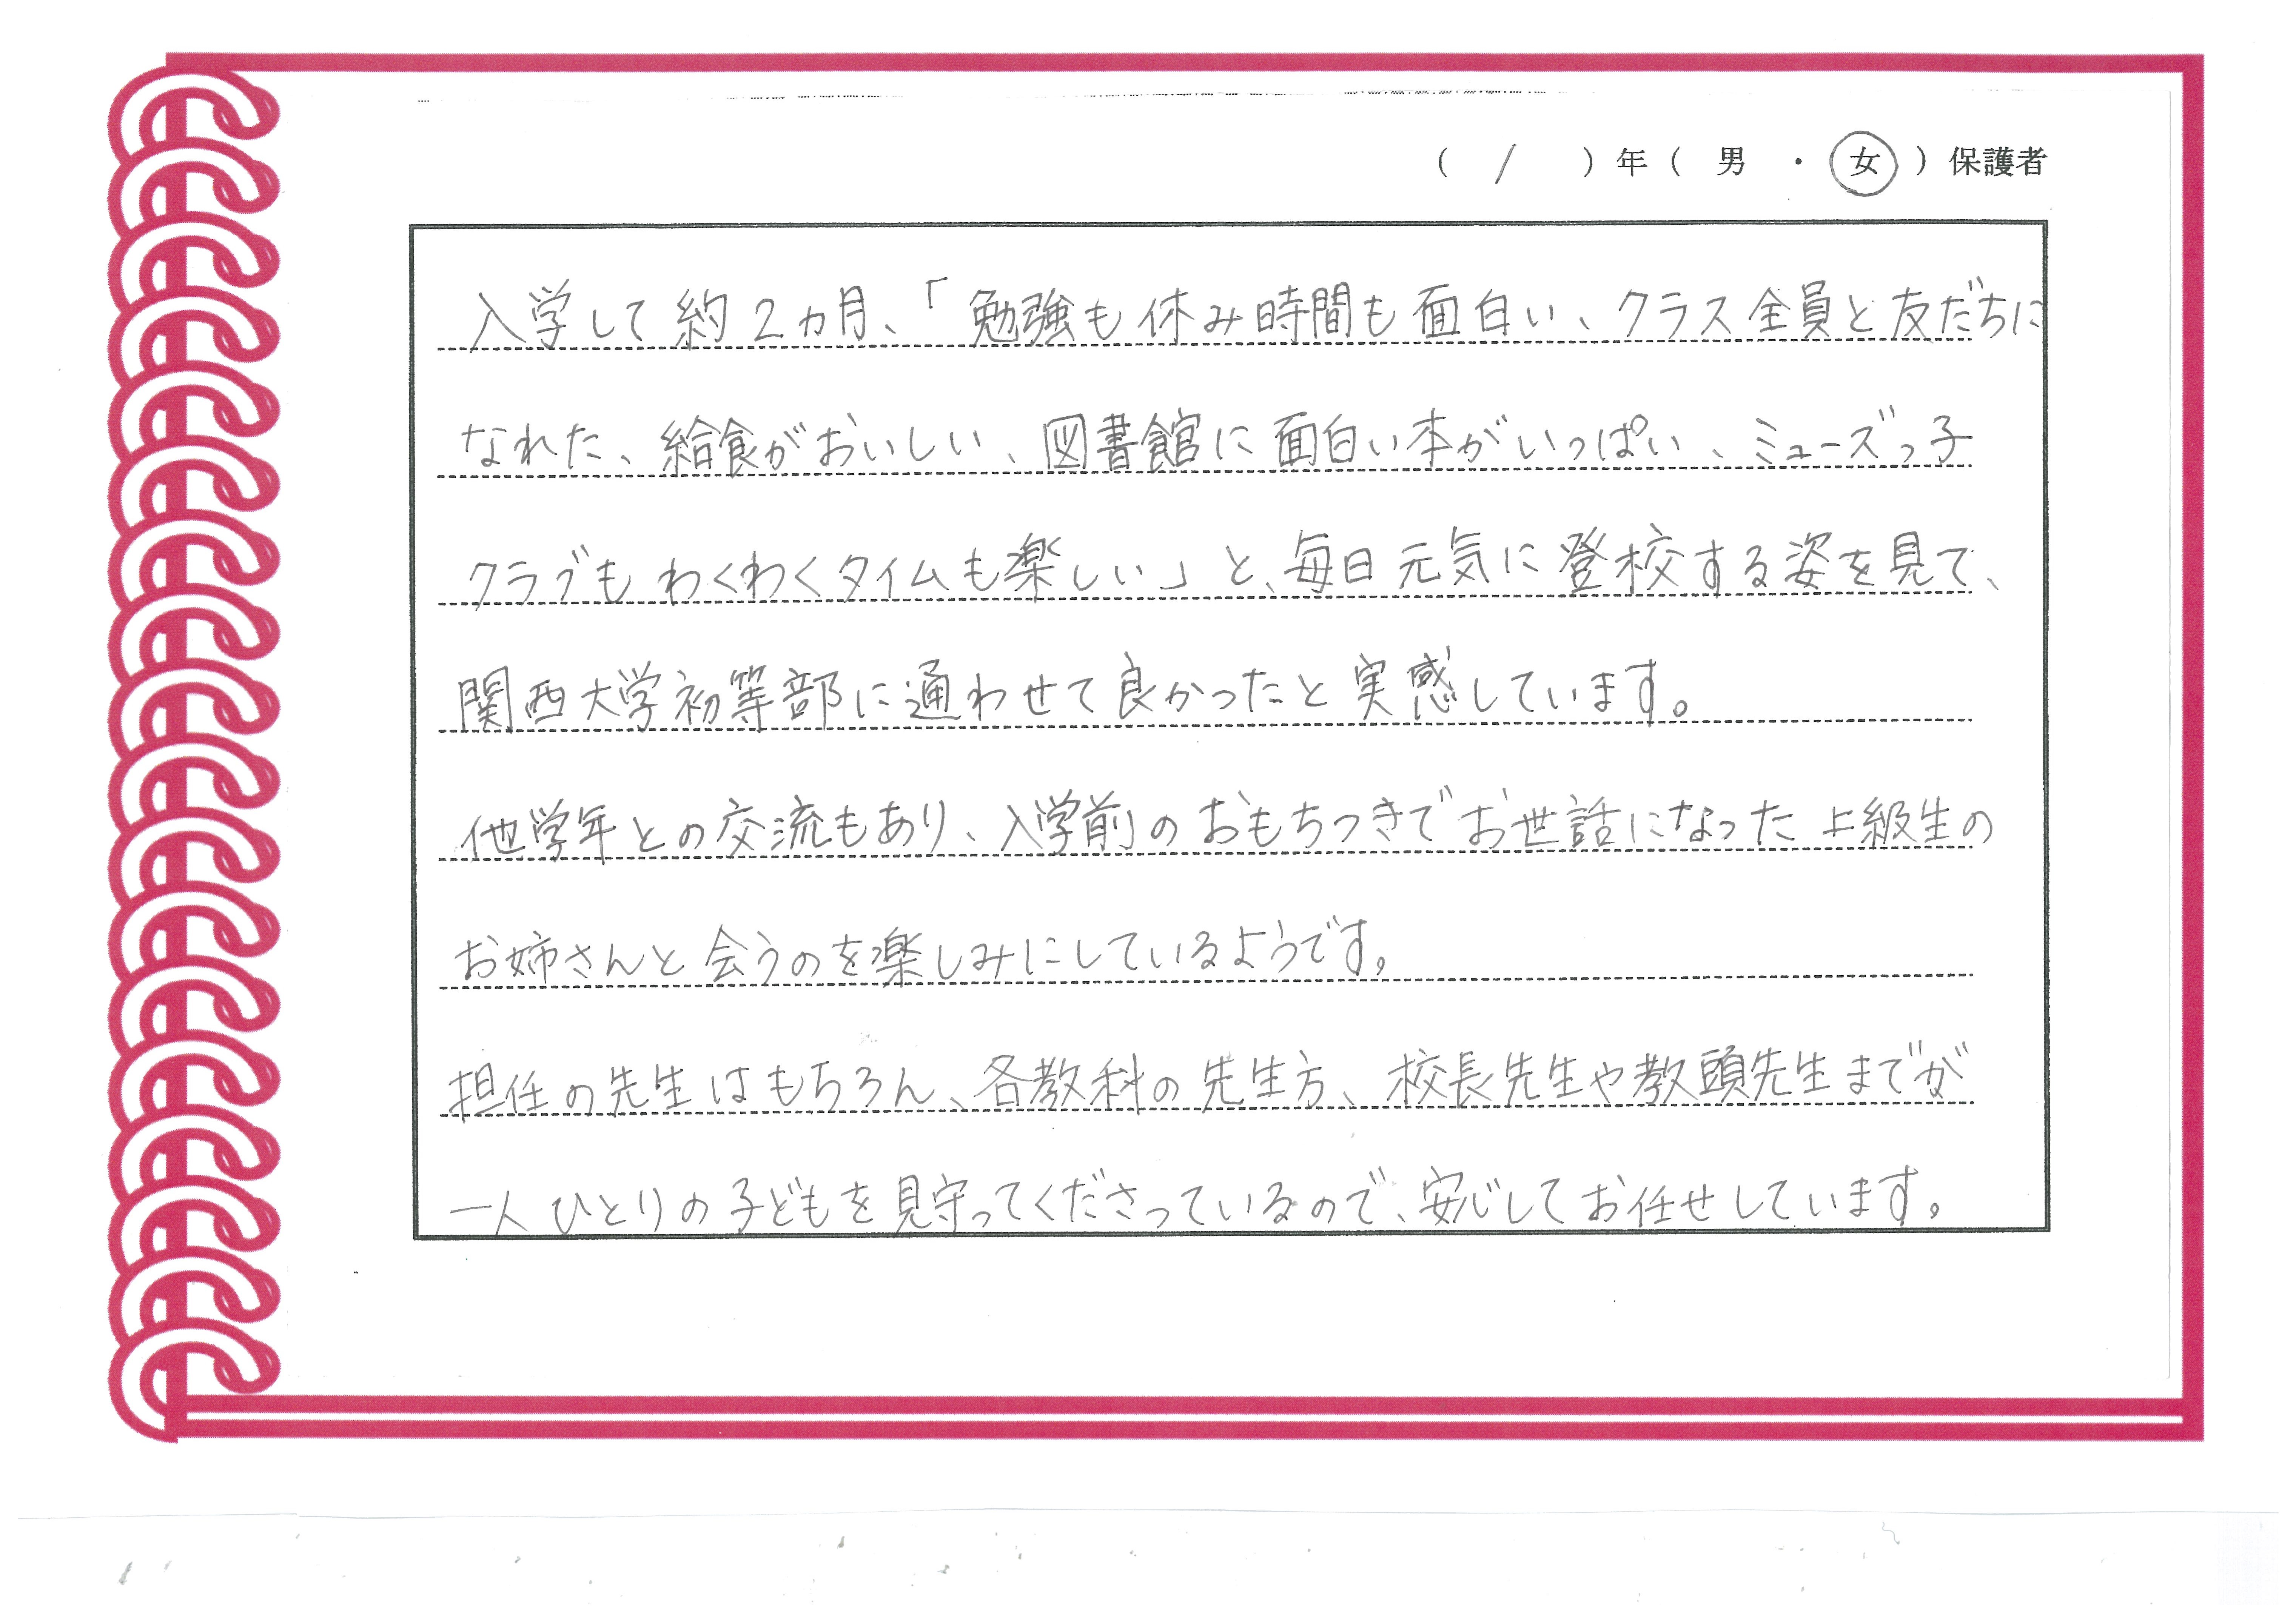 ( 1 ) 年 ( 男 ・ 女 ) 保護者
入学して約2カ月、「勉強も休み時間も面白い、クラス全員と友だちに
なれた、給食がおいしい、図書館に面白い本がいっぱい、ミューズっ子
クラブもわくわくタイムも楽しい」と、毎日元気に登校する姿を見て、
関西大学初等部に通わせて良かったと実感しています。
他学年との交流もあり、入学前のおもちつきでお世話になった上級生の
お姉さんと会うのを楽しみにしているようです。
担任の先生はもちろん、各教科の先生方、校長先生や教頭先生までが
一人ひとりの子どもを見守ってくださっているので、安心してお任せしています。